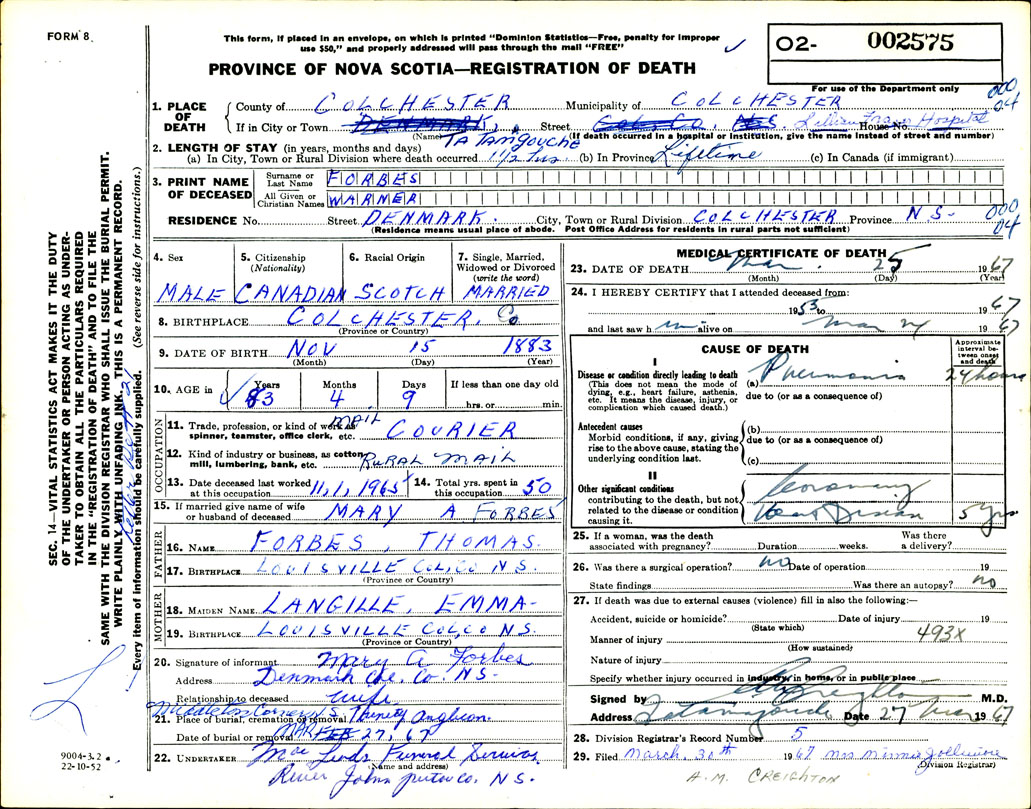 FORM 8.
This form, if placed in an envelope, on which is printed "Dominion Statistics—Free, penalty for improper
use $50," and properly addressed will pass through the mail "FREE"
02- 002575
PROVINCE OF NOVA SCOTIA—REGISTRATION OF DEATH
For use of the Department only
000
04
1. PLACE OF DEATH
County of COLCHESTER Municipality of COLCHESTER
If in City or Town DENMARK, Street Cols Co, NS House No. Lillian Fraser Hospital
(Name) (If death occurred in a hospital or institution, give the name instead of street and number)
TATAMGOUCHE
2. LENGTH OF STAY (in years, months and days)
(a) In City, Town or Rural Division where death occurred 1 1/2 hrs. (b) In Province Lifetime (c) In Canada (if immigrant)
3. PRINT NAME OF DECEASED
Surname or Last Name FORBES
All Given or Christian Names WARNER
RESIDENCE No. Street DENMARK. City, Town or Rural Division COLCHESTER Province NS-
000
04
(Residence means usual place of abode. Post Office Address for residents in rural parts not sufficient)
4. Sex
MALE
5. Citizenship
(Nationality)
CANADIAN
6. Racial Origin
SCOTCH
7. Single, Married, Widowed or Divorced
(write the word)
MARRIED
8. BIRTHPLACE COLCHESTER, Co
(Province or Country)
9. DATE OF BIRTH NOV 15 1883
(Month) (Day) (Year)
10. AGE in Years Months Days If less than one day old
83 4 9 hrs. or min.
OCCUPATION
11. Trade, profession, or kind of work as spinner, teamster, office clerk, etc. MAIL COURIER
12. Kind of industry or business, as cotton mill, lumbering, bank, etc. RURAL MAIL
13. Date deceased last worked at this occupation 11,1,1965
14. Total yrs. spent in this occupation 50
15. If married give name of wife or husband of deceased MARY A FORBES
FATHER
16. NAME FORBES, THOMAS.
17. BIRTHPLACE LOUISVILLE COL,CO NS.
(Province or Country)
MOTHER
18. MAIDEN NAME LANGILLE, EMMA-
19. BIRTHPLACE LOUISVILLE COLCO NS.
(Province or Country)
20. Signature of informant Mary A Forbes
Address Denmark Co. NS-
Relationship to deceased wife
Middleton Corner NS
21. Place of burial, cremation or removal Trinity Anglican.
Date of burial or removal MAR FEB 27, 67
22. UNDERTAKER Mac Funeral Service
(Name and address)
River John NS.
MEDICAL CERTIFICATE OF DEATH
23. DATE OF DEATH Mar. 25 1967
(Month) (Day) (Year)
24. I HEREBY CERTIFY that I attended deceased from:
1953 to 1967
and last saw him alive on Mar 24 1967
CAUSE OF DEATH
Approximate interval between onset and death
I
Disease or condition directly leading to death
(This does not mean the mode of dying, e.g., heart failure, asthenia, etc. It means the disease, injury, or complication which caused death.)
(a) Pneumonia 24 hours
due to (or as a consequence of)
Antecedent causes
Morbid conditions, if any, giving rise to the above cause, stating the underlying condition last.
(b)
due to (or as a consequence of)
(c)
II
Other significant conditions
contributing to the death, but not related to the disease or condition causing it.
Coronary
Heart Disease 5 yrs
25. If a woman, was the death associated with pregnancy? Duration weeks. Was there a delivery?
26. Was there a surgical operation? no Date of operation 19
State findings Was there an autopsy? no
27. If death was due to external causes (violence) fill in also the following:—
Accident, suicide or homicide? Date of injury 19
(State which)
493X
Manner of injury
(How sustained)
Nature of injury
Specify whether injury occurred in industry, in home, or in public place
Signed by A Creighton M.D.
Address Tatamagouche Date 27 Mar 1967
28. Division Registrar's Record Number 5
29. Filed March, 30th 1967 Mrs
(Division Registrar)
A.M. CREIGHTON
SEC. 14—VITAL STATISTICS ACT MAKES IT THE DUTY
OF THE UNDERTAKER OR PERSON ACTING AS UNDER-
TAKER TO OBTAIN ALL THE PARTICULARS REQUIRED
IN THE "REGISTRATION OF DEATH" AND TO FILE THE
SAME WITH THE DIVISION REGISTRAR WHO SHALL ISSUE THE BURIAL PERMIT.
WRITE PLAINLY WITH UNFADING INK. THIS IS A PERMANENT RECORD.
Every item of information should be carefully supplied. (See reverse side for instructions.)
9004-3.2
22-10-52